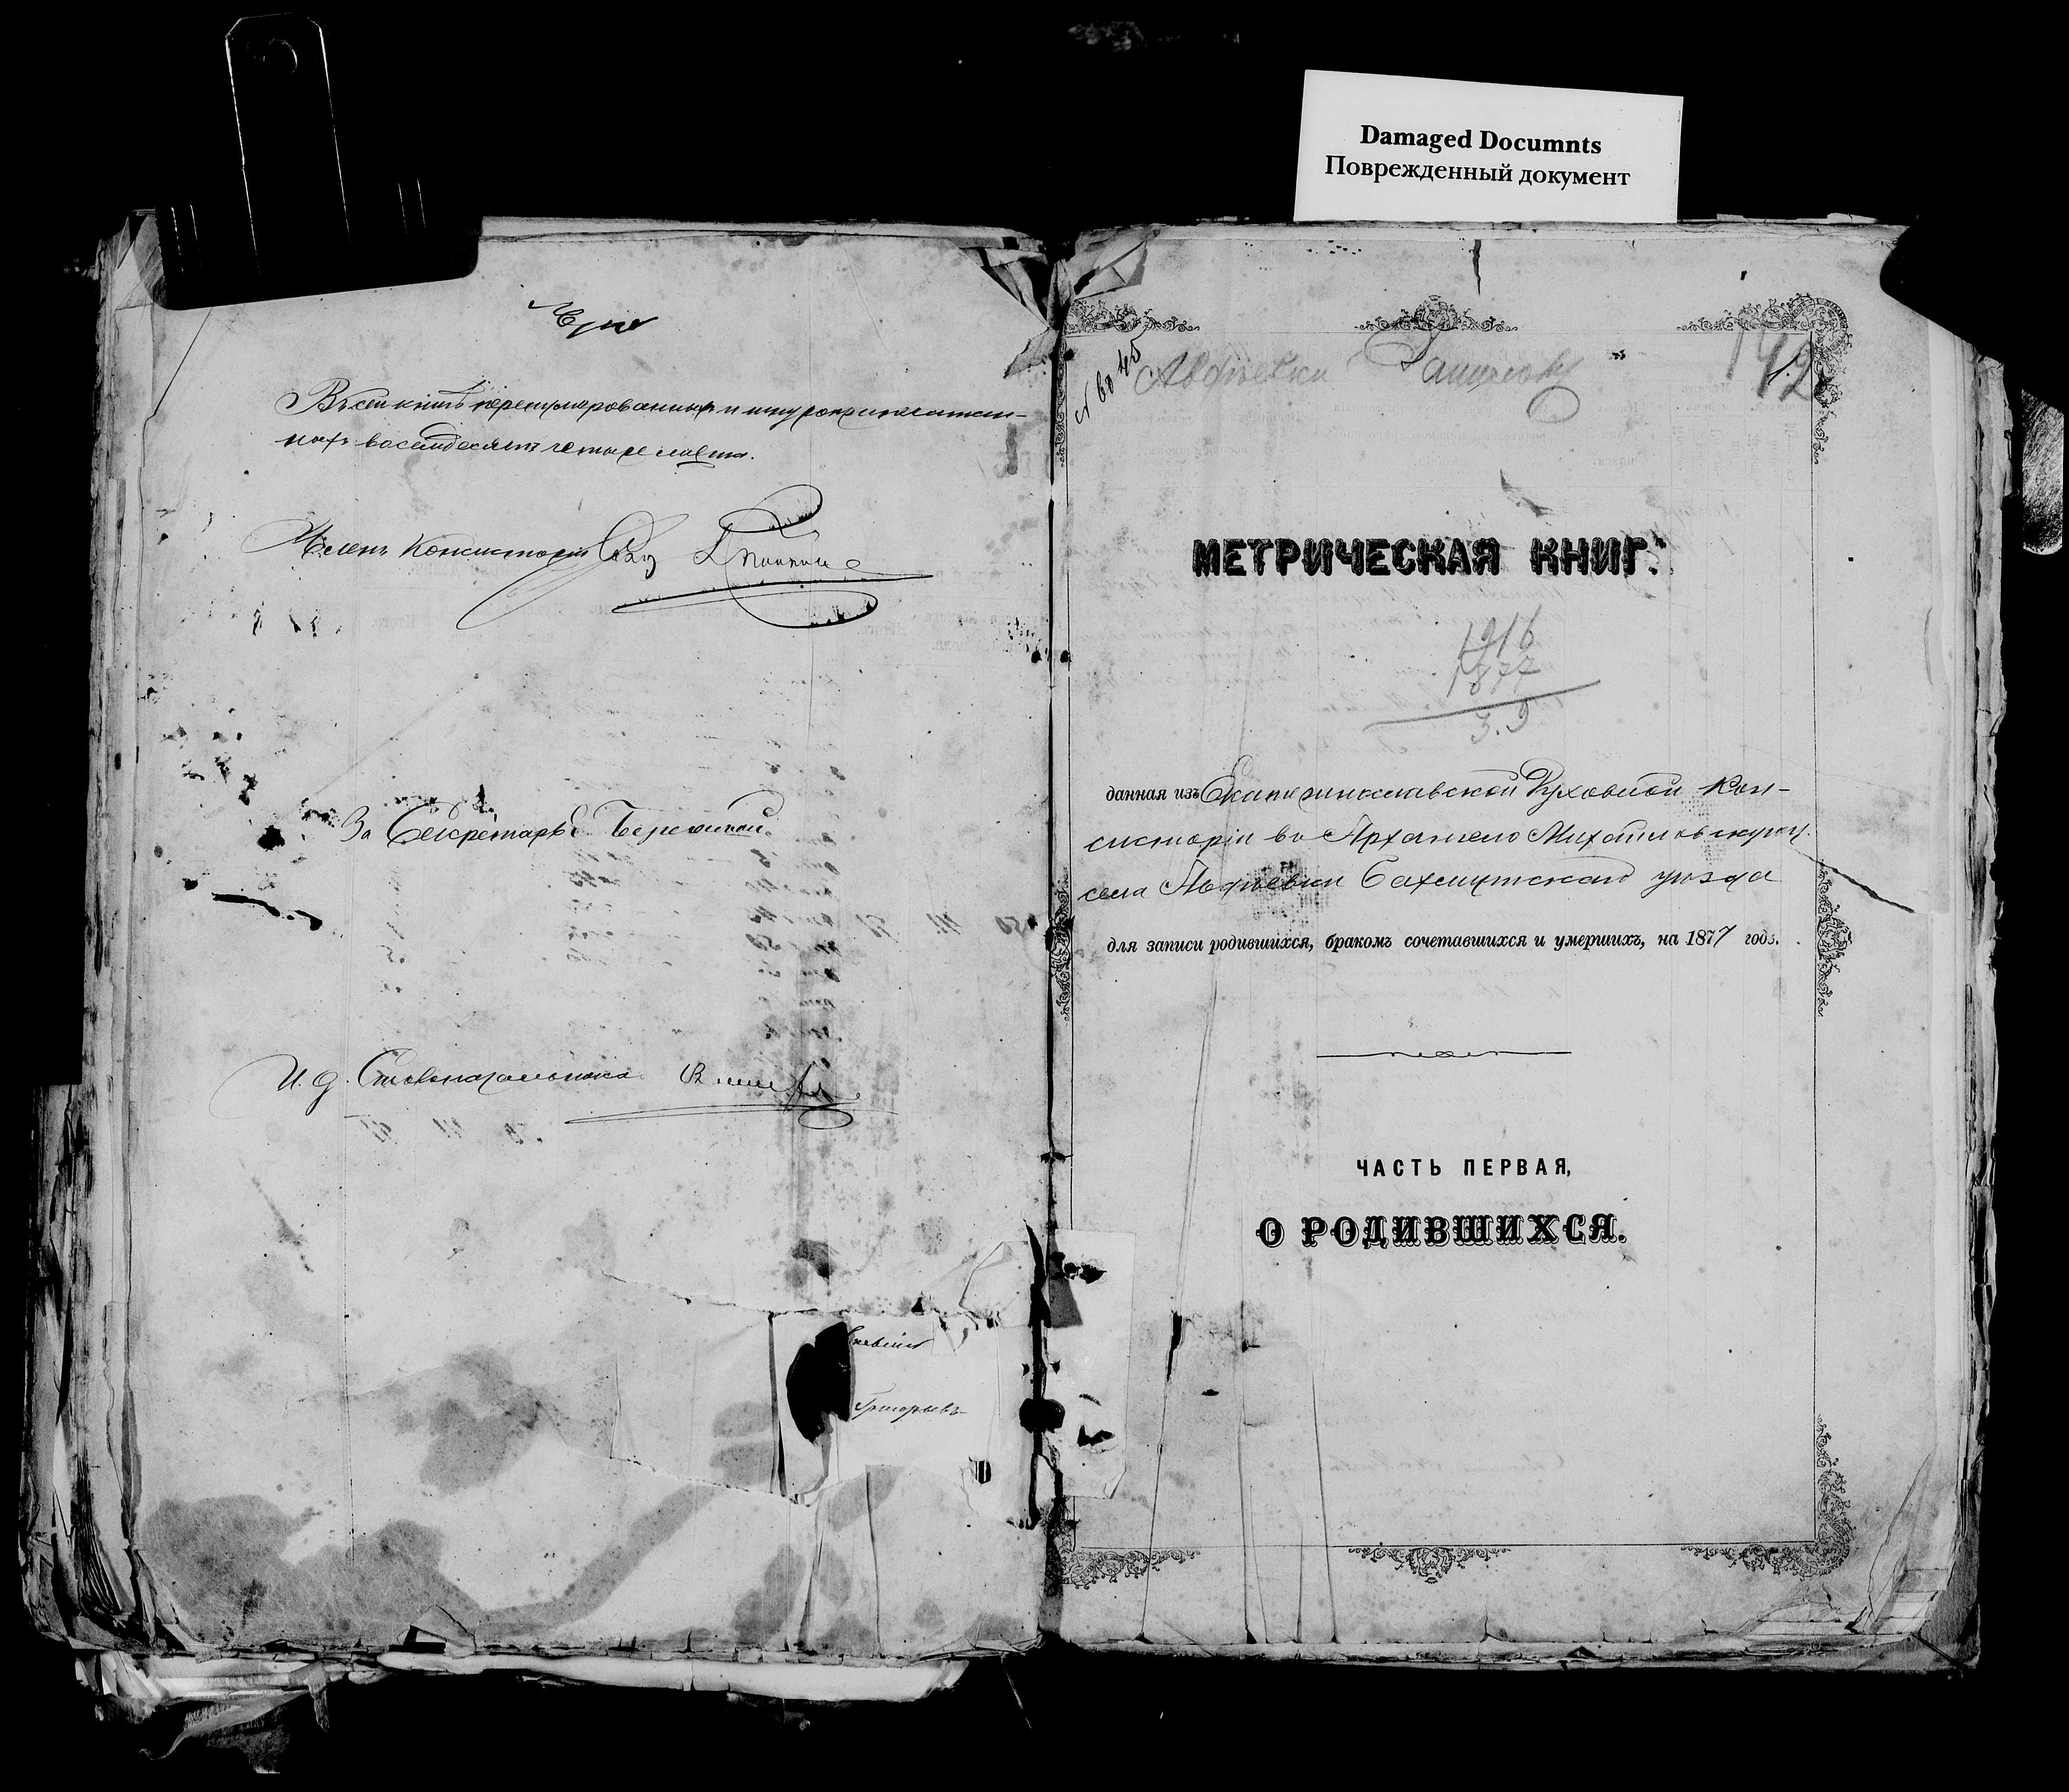 Damaged Documnts
Поврежденный документ
Въ сей книгѣ перенумерованныхъ и шнуроприпечатан-
ныхъ восемдесятъ четыре листа.
Членъ Консисторіи
За Секретаря
И. д. Столоначальника
Григорьевъ
Авдѣевки
142
МЕТРИЧЕСКАЯ КНИГ
1916
1877
3.9
данная изъ Екатеринославской Духовной Кон-
систоріи въ Архангело Михайловскую
села Авдѣевки Бахмутскаго уѣзда
для записи родившихся, бракомъ сочетавшихся и умершихъ, на 1877 годъ.
ЧАСТЬ ПЕРВАЯ,
О РОДИВШИХСЯ.